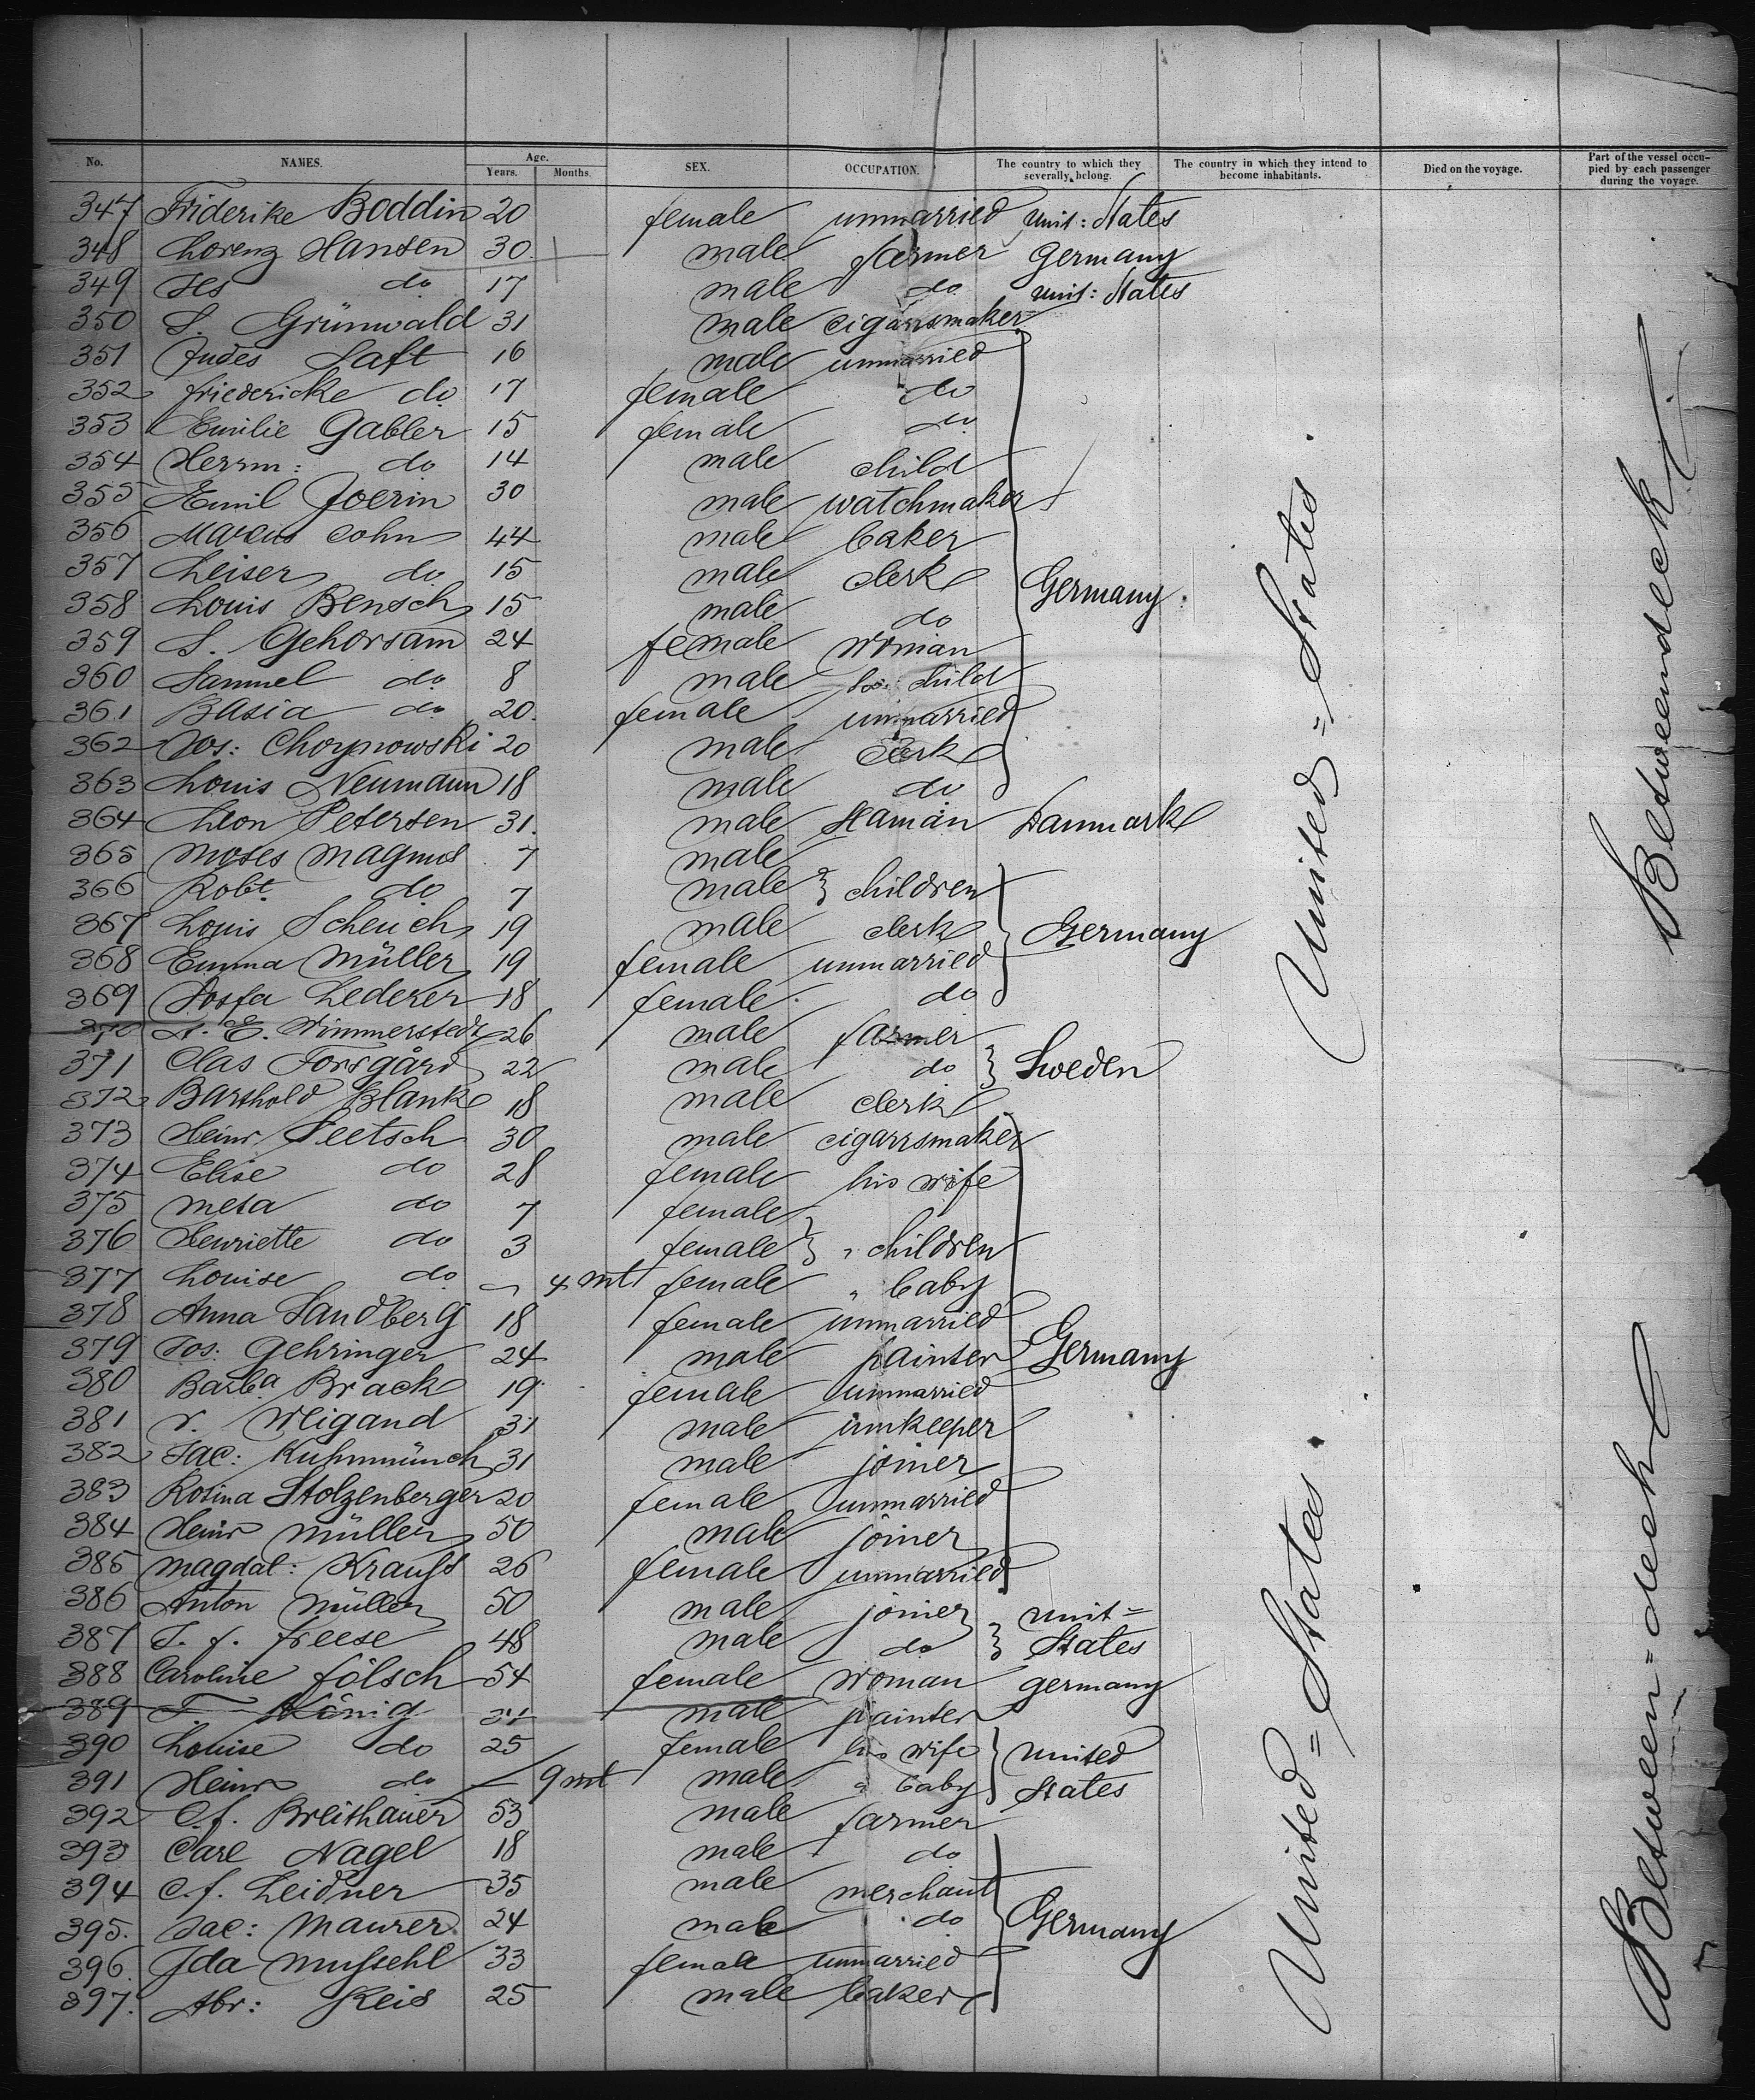 No. NAMES. Age. Years. Months. SEX. OCCUPATION. The country to which they severally belong. The country in which they intend to become inhabitants. Died on the voyage. Part of the vessel occupied by each passenger during the voyage.
347 Friderike Boddin 20 female unmarried Unit: States
348 Lorenz Hansen 30 male farmer Germany
349 do 17 male do Unit: States
350 S. Grünwald 31 male cigarrsmaker
351 Judes Saft 16 male unmarried
352 Friedericke do 17 female do
353 Emilie Gabler 15 female do
354 Herrm: do 14 male child
355 Emil Joerin 30 male watchmaker
356 Marcus Cohn 44 male baker
357 Leiser do 15 male clerk Germany
358 Louis Bensch 15 male do
359 S. Gehorsam 24 female woman
360 Samuel do 8 male child
361 Basia do 20 female unmarried
362 Jos: Chorynowski 20 male clerk
363 Louis Neumann 18 male do
364 Leon Petersen 31. male seaman Danmark
365 Moses Magnus 7 male
366 Robt. do 7 male } children
367 Louis Scheuch 19 male clerk Germany
368 Emma Müller 19 female unmarried
369 Josfa Lederer 18 female do
370 A. E. Wimmerstedt 26 male farmer
371 Clas Forsgård 22 male do } Sweden
372 Barthold Blank 18 male clerk
373 Heinr Peetsch 30 male cigarrsmaker
374 Elise do 28 female his wife
375 Meta do 7 female
376 Henriette do 3 female } " children
377 Louise do — 4 mt female " baby
378 Anna Sandberg 18 female unmarried
379 Jos: Gehringer 24 male painter Germany
380 Barba Brack 19 female unmarried
381 V. Weigand 31 male innkeeper
382 Jac: Kuhnmünch 31 male joiner
383 Rosina Stolzenberger 20 female unmarried
384 Heinr Müller 50 male joiner
385 Magdal: Krauss 26 female unmarried
386 Anton Müller 50 male joiner Unit=
387 J. F. Freese 48 male do } States
388 Caroline Fölsch 54 female woman Germany
389 F König male painter
390 Louise do 25 female his wife United
391 Heinr do — 9 mt male " baby States
392 C. F. Breithauer 53 male farmer
393 Carl Nagel 18 male do
394 C. F. Leidner 35 male merchant
395. Jac: Maurer 24 male do Germany
396. Ida Mussehl 33 female unmarried
397. Abr: Reis 25 male baker
United = States.
United = States.
Betweendeck.
Between=deck